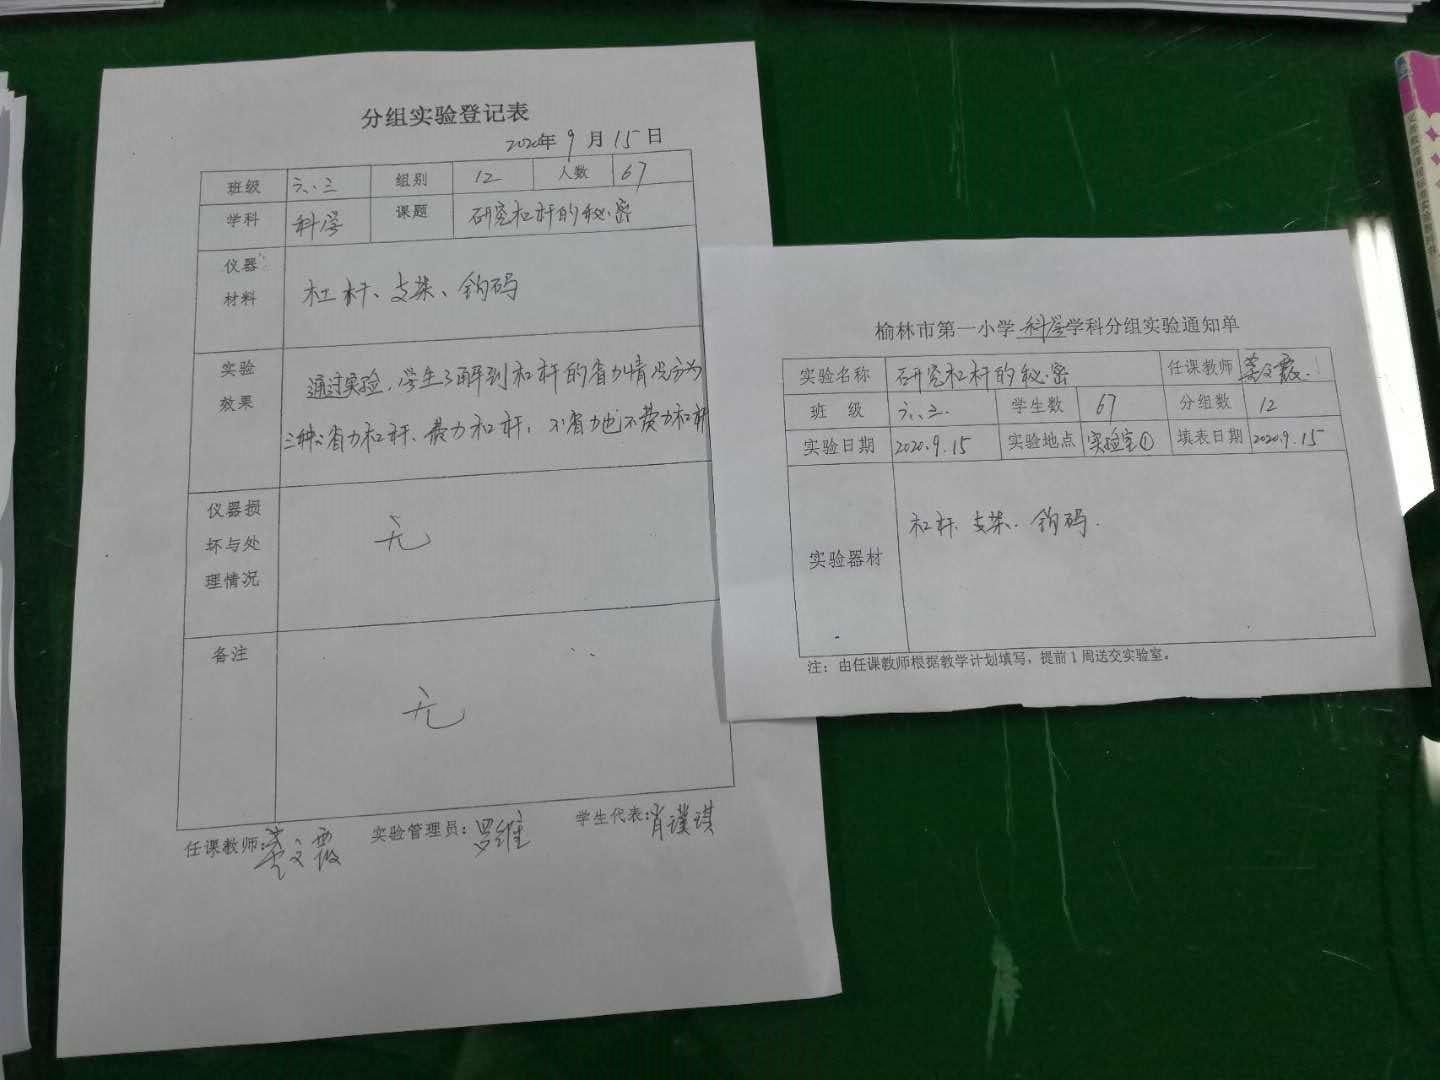 分组实验登记表
2020年9月15日
班级 六.三 组别 12 人数 67
学科 科学 课题 研究杠杆的秘密
仪器材料 杠杆、支架、钩码
实验效果 通过实验,学生了解到杠杆的省力情况分为
三种:省力杠杆、费力杠杆,不省力也不费力杠杆
仪器损坏与处理情况 无
备注 无
任课教师: 文霞 实验管理员:罗维 学生代表:肖璞琪
榆林市第一小学 科学 学科分组实验通知单
实验名称 研究杠杆的秘密 任课教师 文霞
班 级 六.三. 学生数 67 分组数 12
实验日期 2020.9.15 实验地点 实验室① 填表日期 2020.9.15
实验器材 杠杆.支架.钩码.
注:由任课教师根据教学计划填写,提前1周送交实验室。